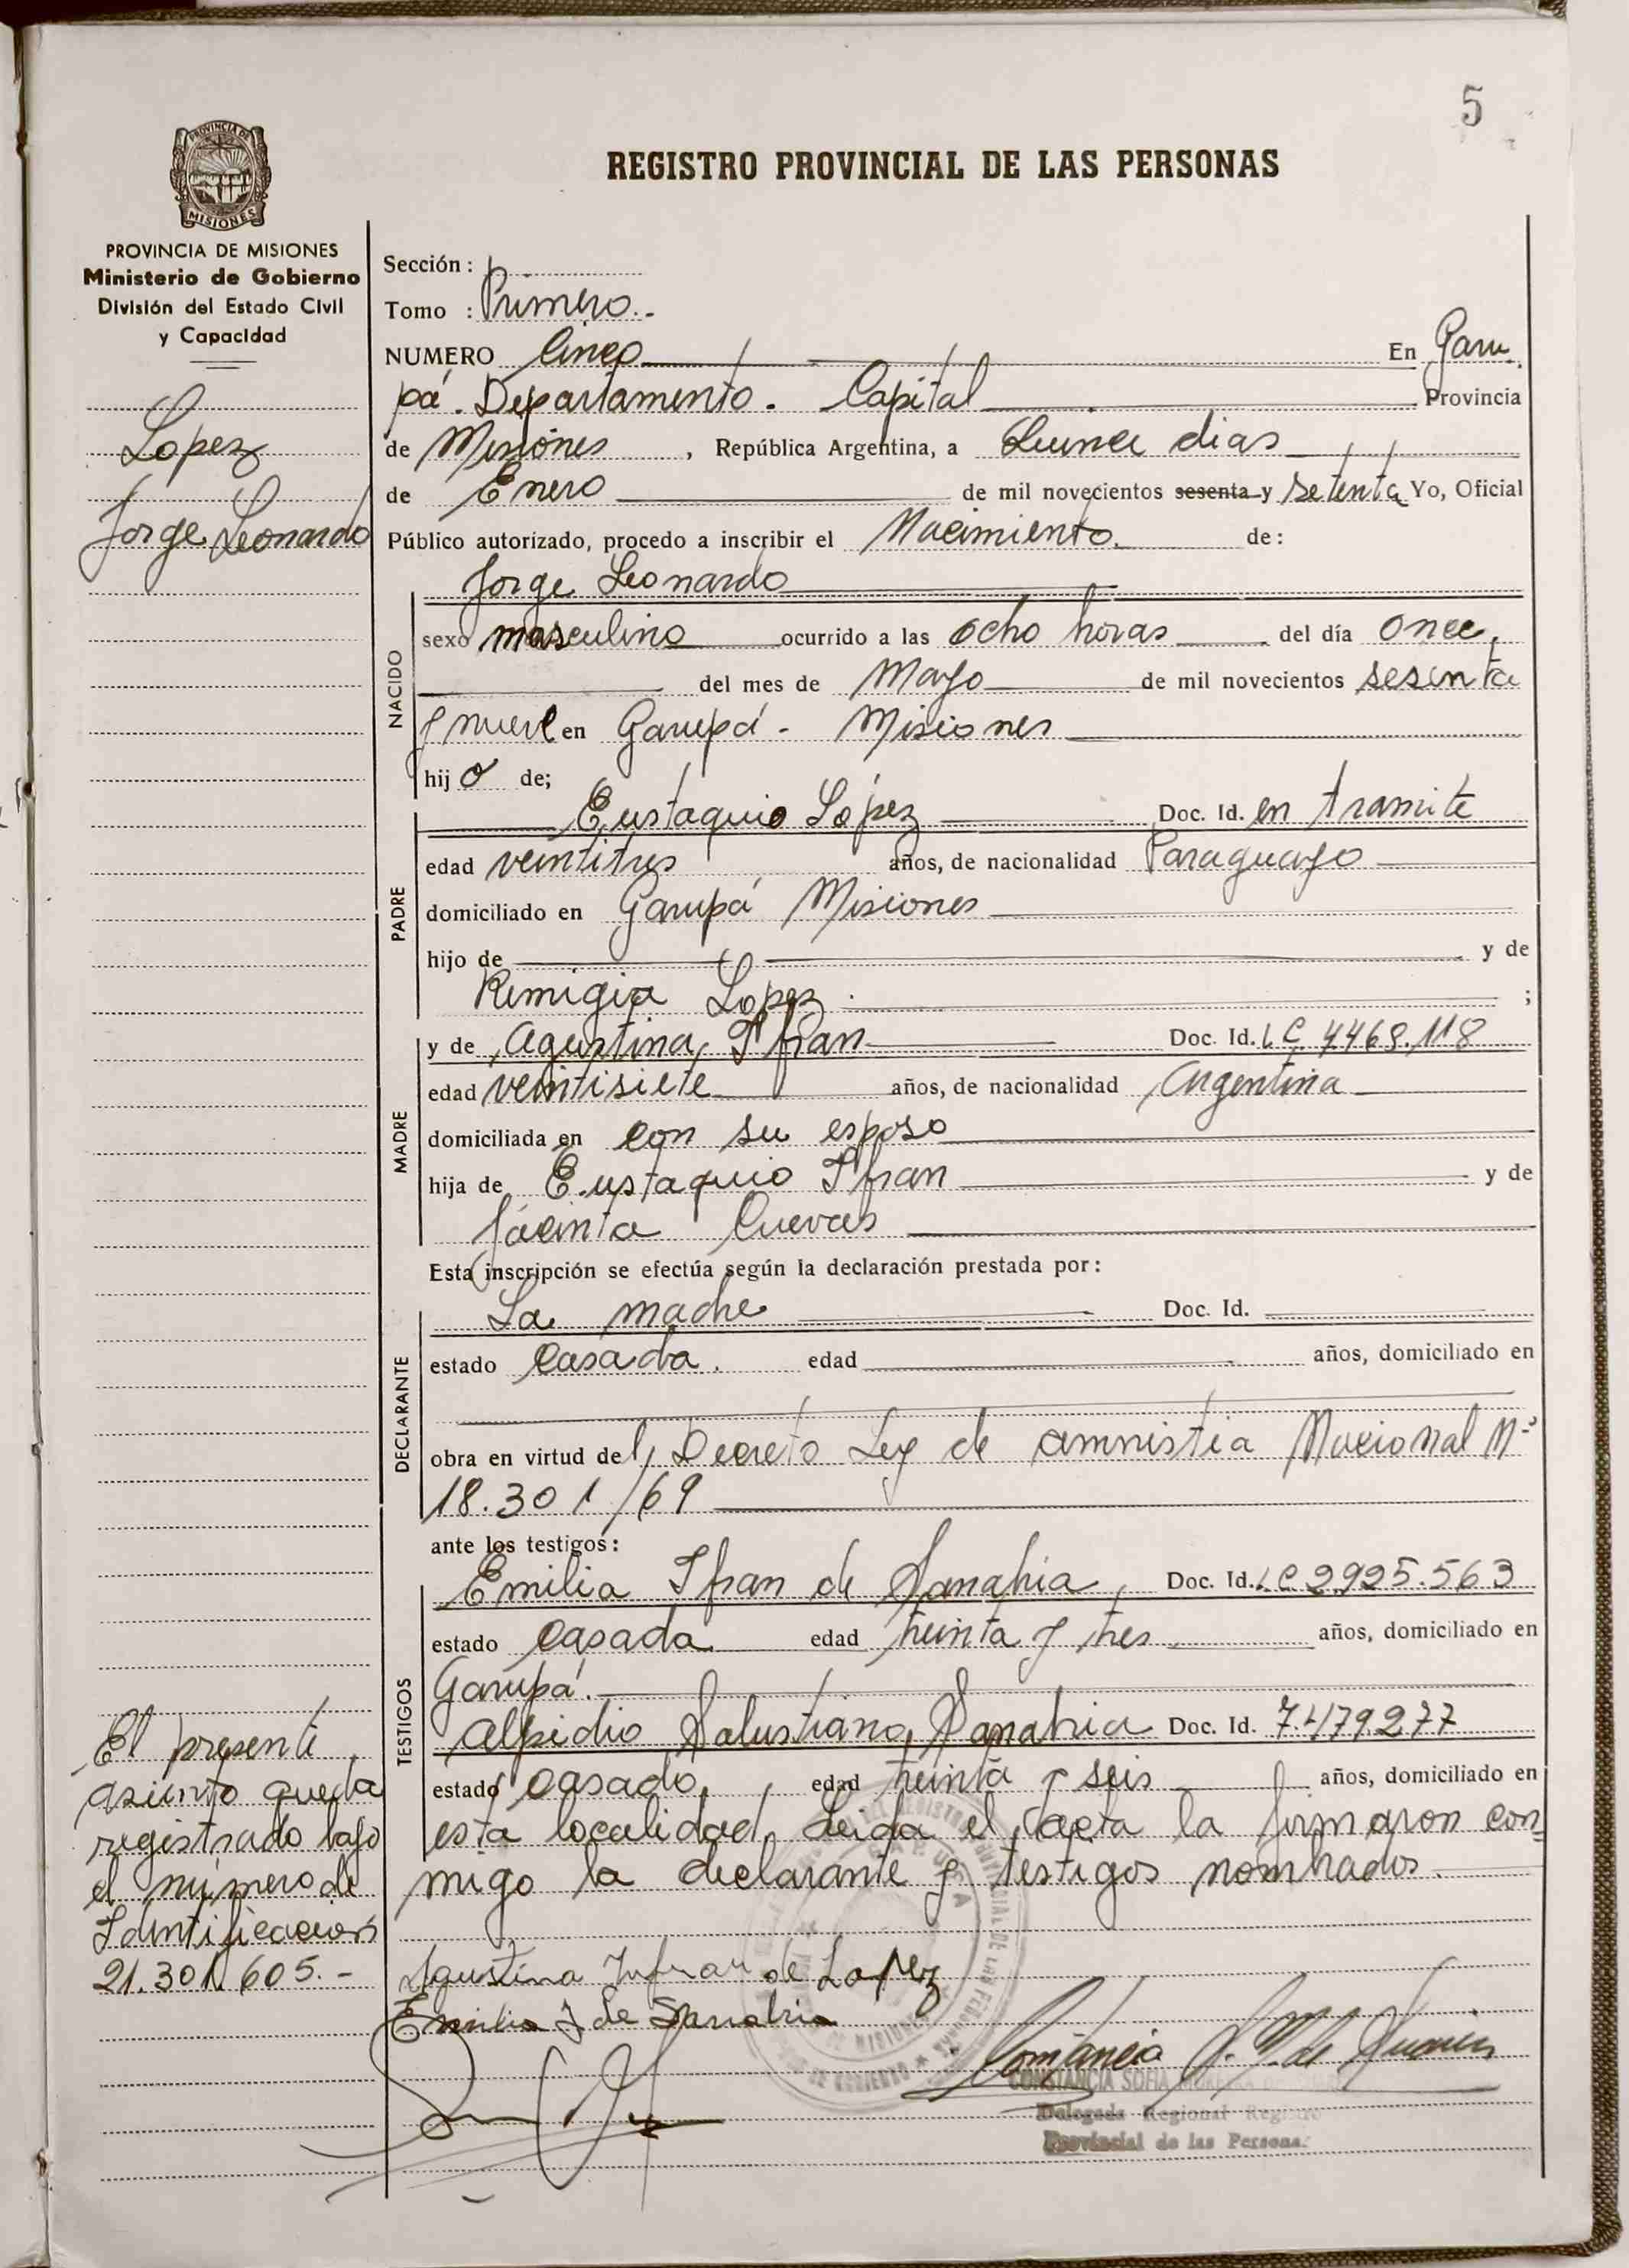 5
REGISTRO PROVINCIAL DE LAS PERSONAS
PROVINCIA DE
MISIONES
PROVINCIA DE MISIONES
Ministerio de Gobierno
División del Estado Civil
y Capacidad
Lopez
Jorge Leonardo
Sección:
Tomo : Primero.-
NUMERO Cinco En Garu
pá. Departamento. Capital Provincia
de Misiones, República Argentina, a Quince dias
de Enero de mil novecientos sesenta y setenta Yo, Oficial
Público autorizado, procedo a inscribir el Nacimiento de:
Jorge Leonardo
NACIDO
sexo masculino ocurrido a las ocho horas del día once,
del mes de Mayo de mil novecientos sesenta
y nueve en Garupá - Misiones
hijo de;
PADRE
Eustaquio López Doc. Id. en tramite
edad veintitres años, de nacionalidad Paraguayo
domiciliado en Garupá Misiones
hijo de y de
Remigia Lopez ;
MADRE
y de Agustina Ifran Doc. Id. L.C. 4.468.118
edad veintisiete años, de nacionalidad Argentina
domiciliada en con su esposo
hija de Eustaquio Ifran y de
Jacinta Cuevas
Esta inscripción se efectúa según la declaración prestada por:
DECLARANTE
La madre Doc. Id.
estado Casada. edad años, domiciliado en
obra en virtud del Decreto Ley de amnistia Nacional Nº
18.301/69
ante los testigos:
TESTIGOS
Emilia Ifran de Sanabria, Doc. Id. L.C 2.925.563
estado casada edad treinta y tres años, domiciliado en
Garupá.
Alpidio Salustiano Sanabria Doc. Id. 7.479.277
estado casado, edad treinta y seis años, domiciliado en
esta localidad, Leida el acta la firmaron con=
migo la declarante y testigos nombrados.
El presente
asiento queda
registrado bajo
el número de
Identificacion
21.301.605.-
Agustina Infran de Lopez
Emilia I de Sanabria
CONSTANCIA SOFIA
Delegada Regional Registro
Provincial de las Personas